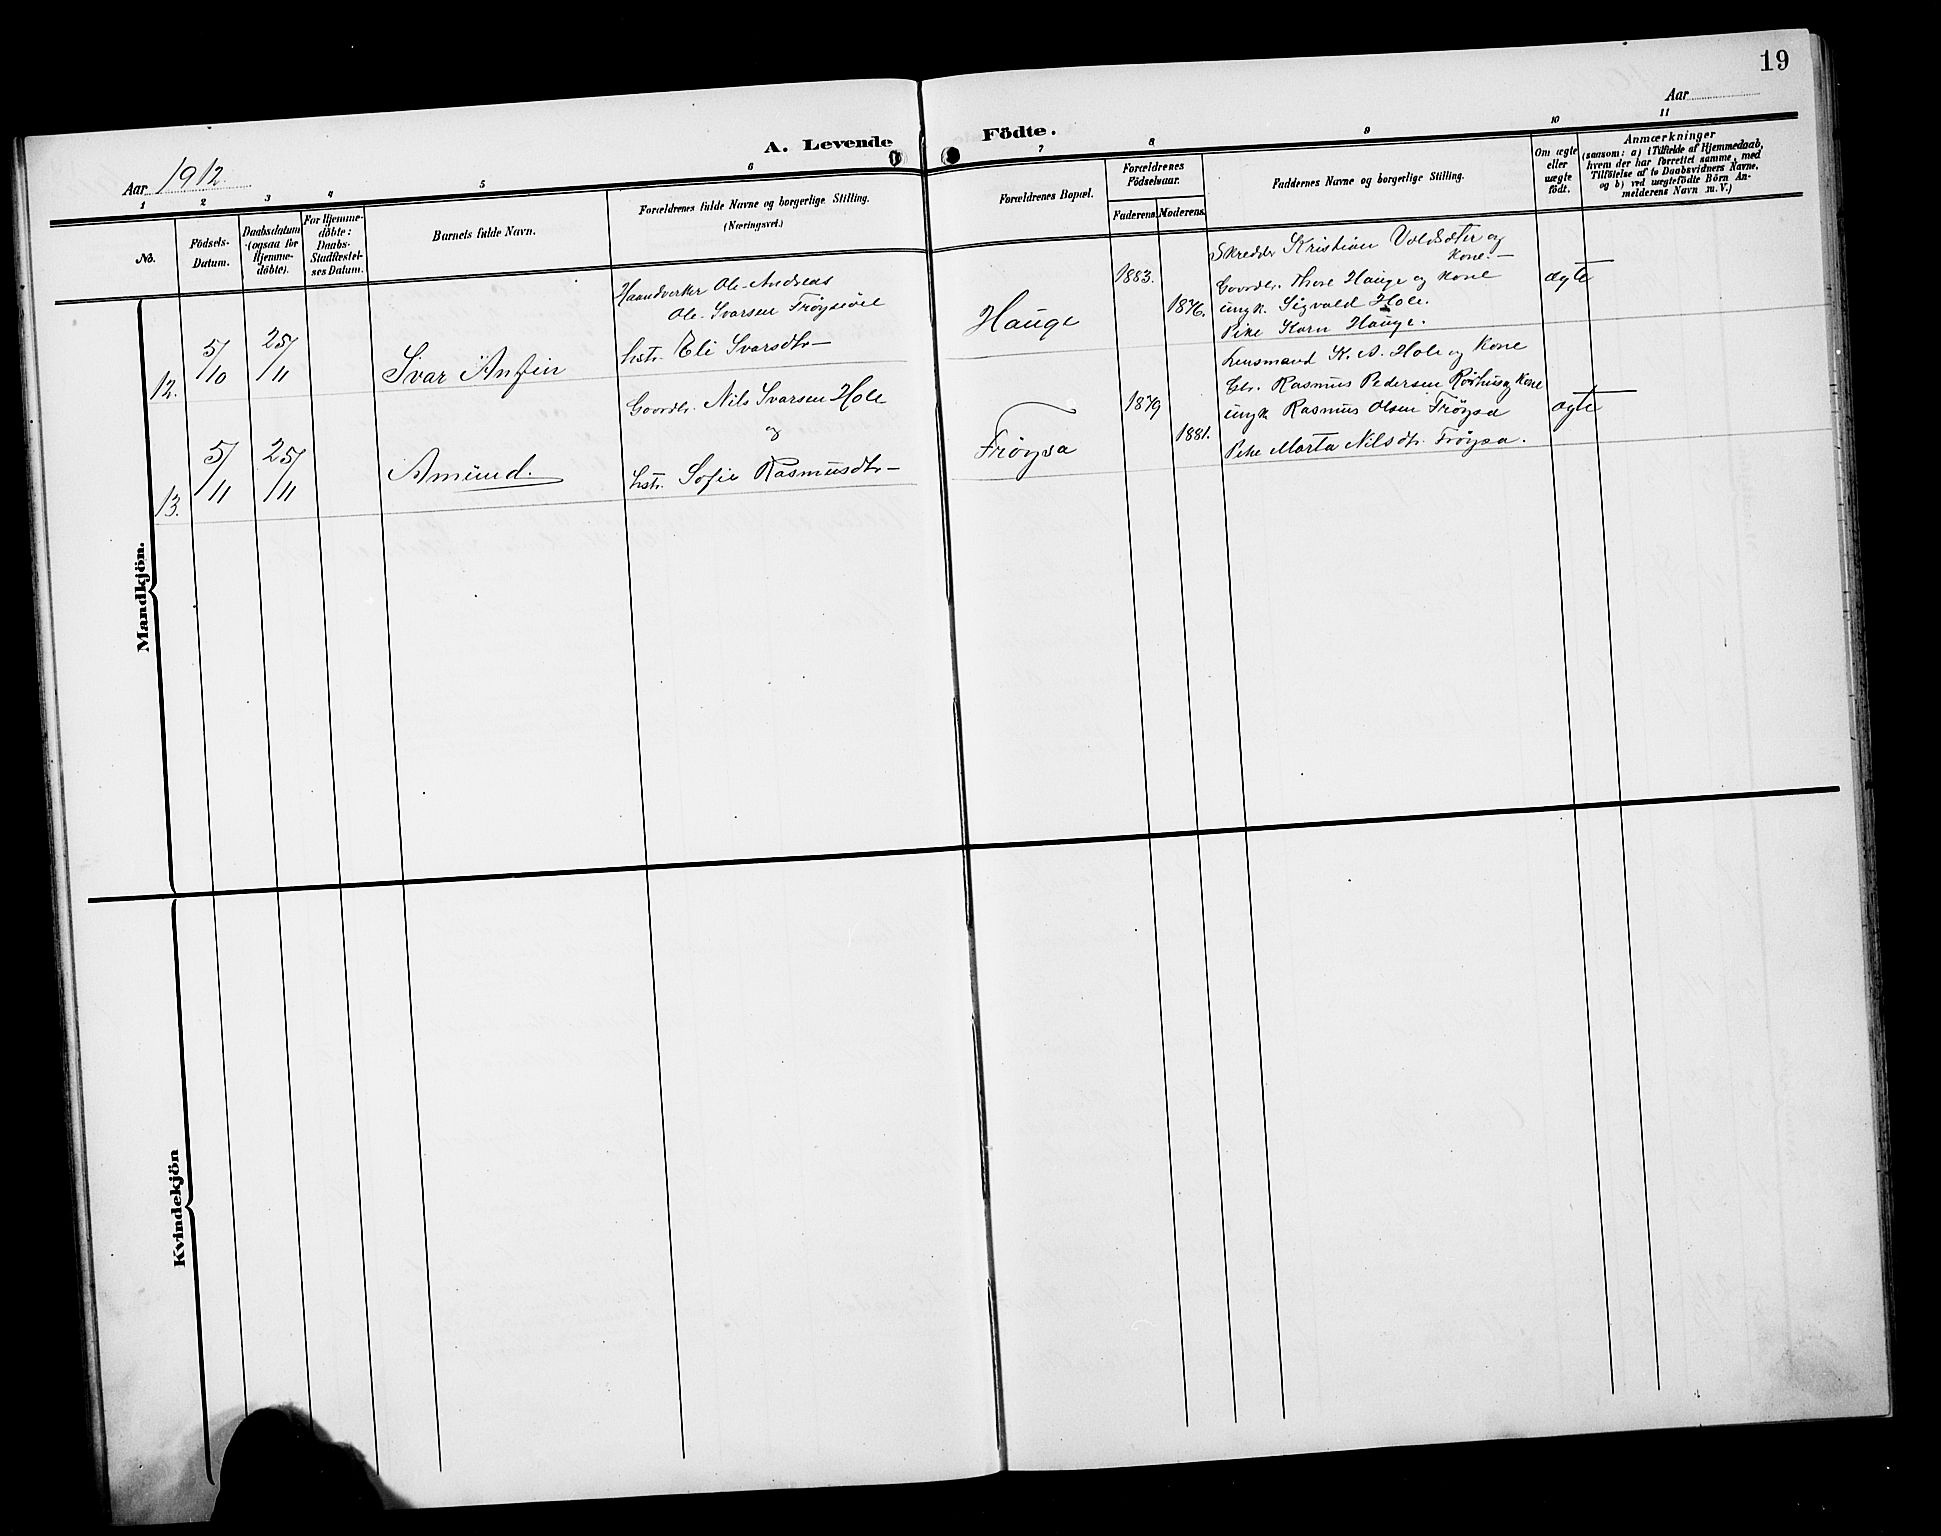 19
A. Levende Födte.
Aar 1912
Aar
1 2 3 4 5 6 7 8 9 10 11
No.
Födsels-
Datum.
Daabsdatum
(ogsaa for
Hjemme-
döbte).
For Hjemme-
döbte:
Daabs-
Stadfæstel-
ses Datum.
Barnets fulde Navn.
Forældrenes fulde Navne og borgerlige Stilling.
(Næringsvei.)
Forældrenes Bopæl.
Forældrenes
Födselsaar.
Faderens. Moderens.
Faddernes Navne og borgerlige Stilling.
Om ægte
eller
uægte
født.
Anmærkninger
(saasom: a) i Tilfælde af Hjemmedaab,
hvem der har forrettet samme, med
Tilföielse af to Daabsvidners Navne,
og b) ved uægtefödte Börn An-
melderens Navn m. V.)
Mandkjön.
12.
5/10
25/11
Ivar Anfin
Haandverker Ole Andreas
Ole Ivarsen Fröysa
hstr. Eli Ivarsdtr
Hauge
1883.
1876.
Skredder Kristian Voldsæter og
Kone.
Gaardbr. Thore Hauge og Kone
ungk. Sigvald Hole.
Pike Karn Hauge.
ægte
13.
5/11
25/11
Amund.
Gaardbr. Nils Ivarsen Hole
og
hstr. Sofie Rasmusdtr
Fröysa
1879
1881.
Lensmand K. A. Hole og Kone
Gbr. Rasmus Pedersen Röshus og Kone
ungk Rasmus Olsen Fröysa
Pike Marta Nilsdtr. Fröysa.
ægte
Kvindekjön